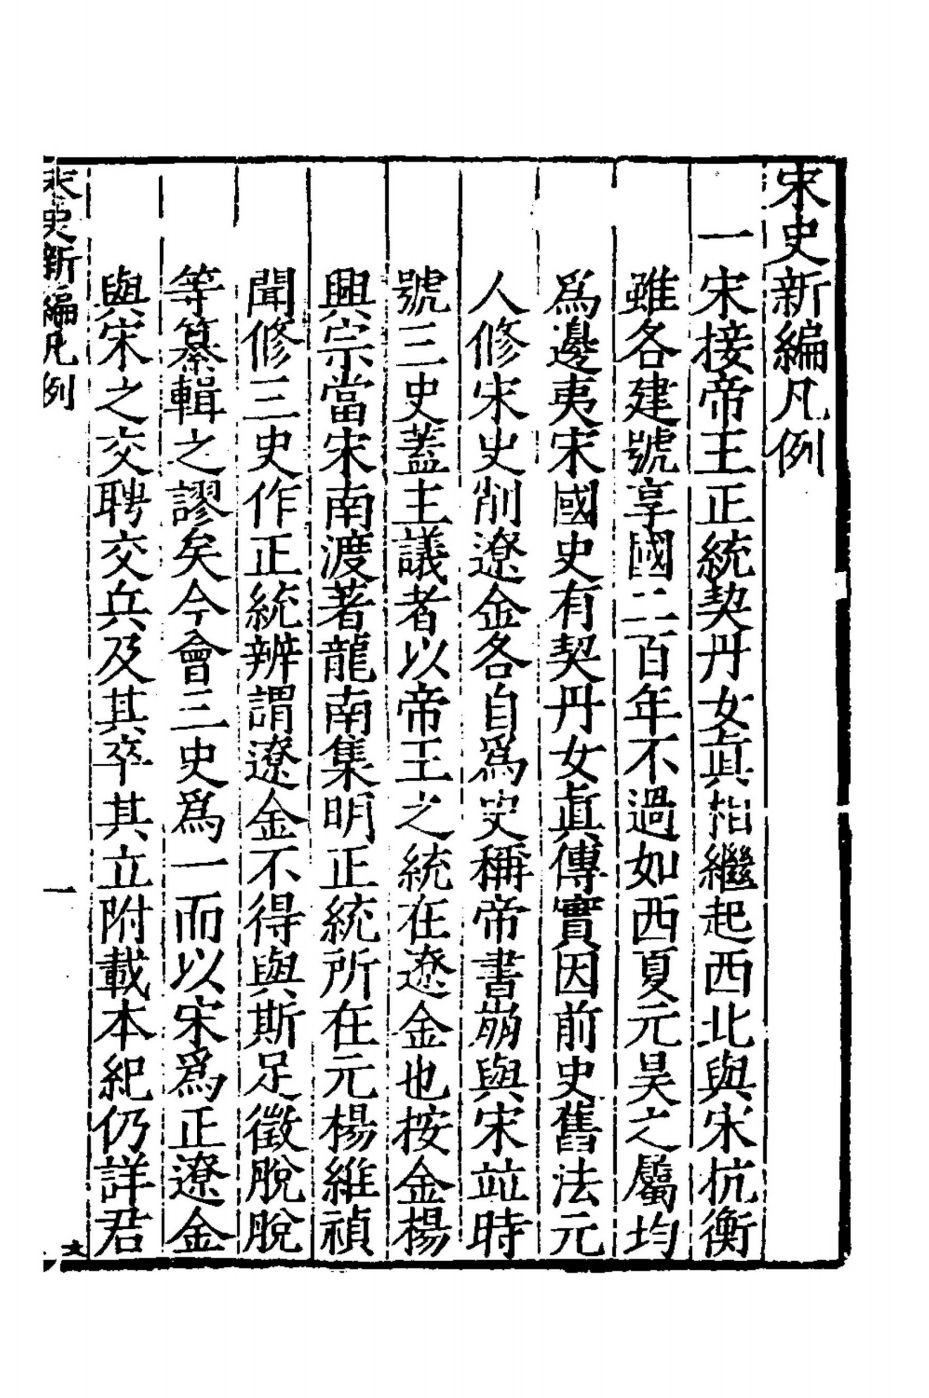 宋史新編凡例
一宋接帝王正統契丹女眞相繼起西北與宋抗衡
雖各建號享國二百年不過如西夏元昊之屬均
爲邊夷宋國史有契丹女眞傳實因前史舊法元
人修宋史削遼金各自爲史稱帝書崩與宋竝時
號三史蓋主議者以帝王之統在遼金也按金楊
興宗當宋南渡著龍南集明正統所在元楊維禎
聞修三史作正統辨謂遼金不得與斯足徵脫脫
等纂輯之謬矣今會三史爲一而以宋爲正遼金
與宋之交聘交兵及其卒其立附載本紀仍詳君
宋史新編凡例
一
文